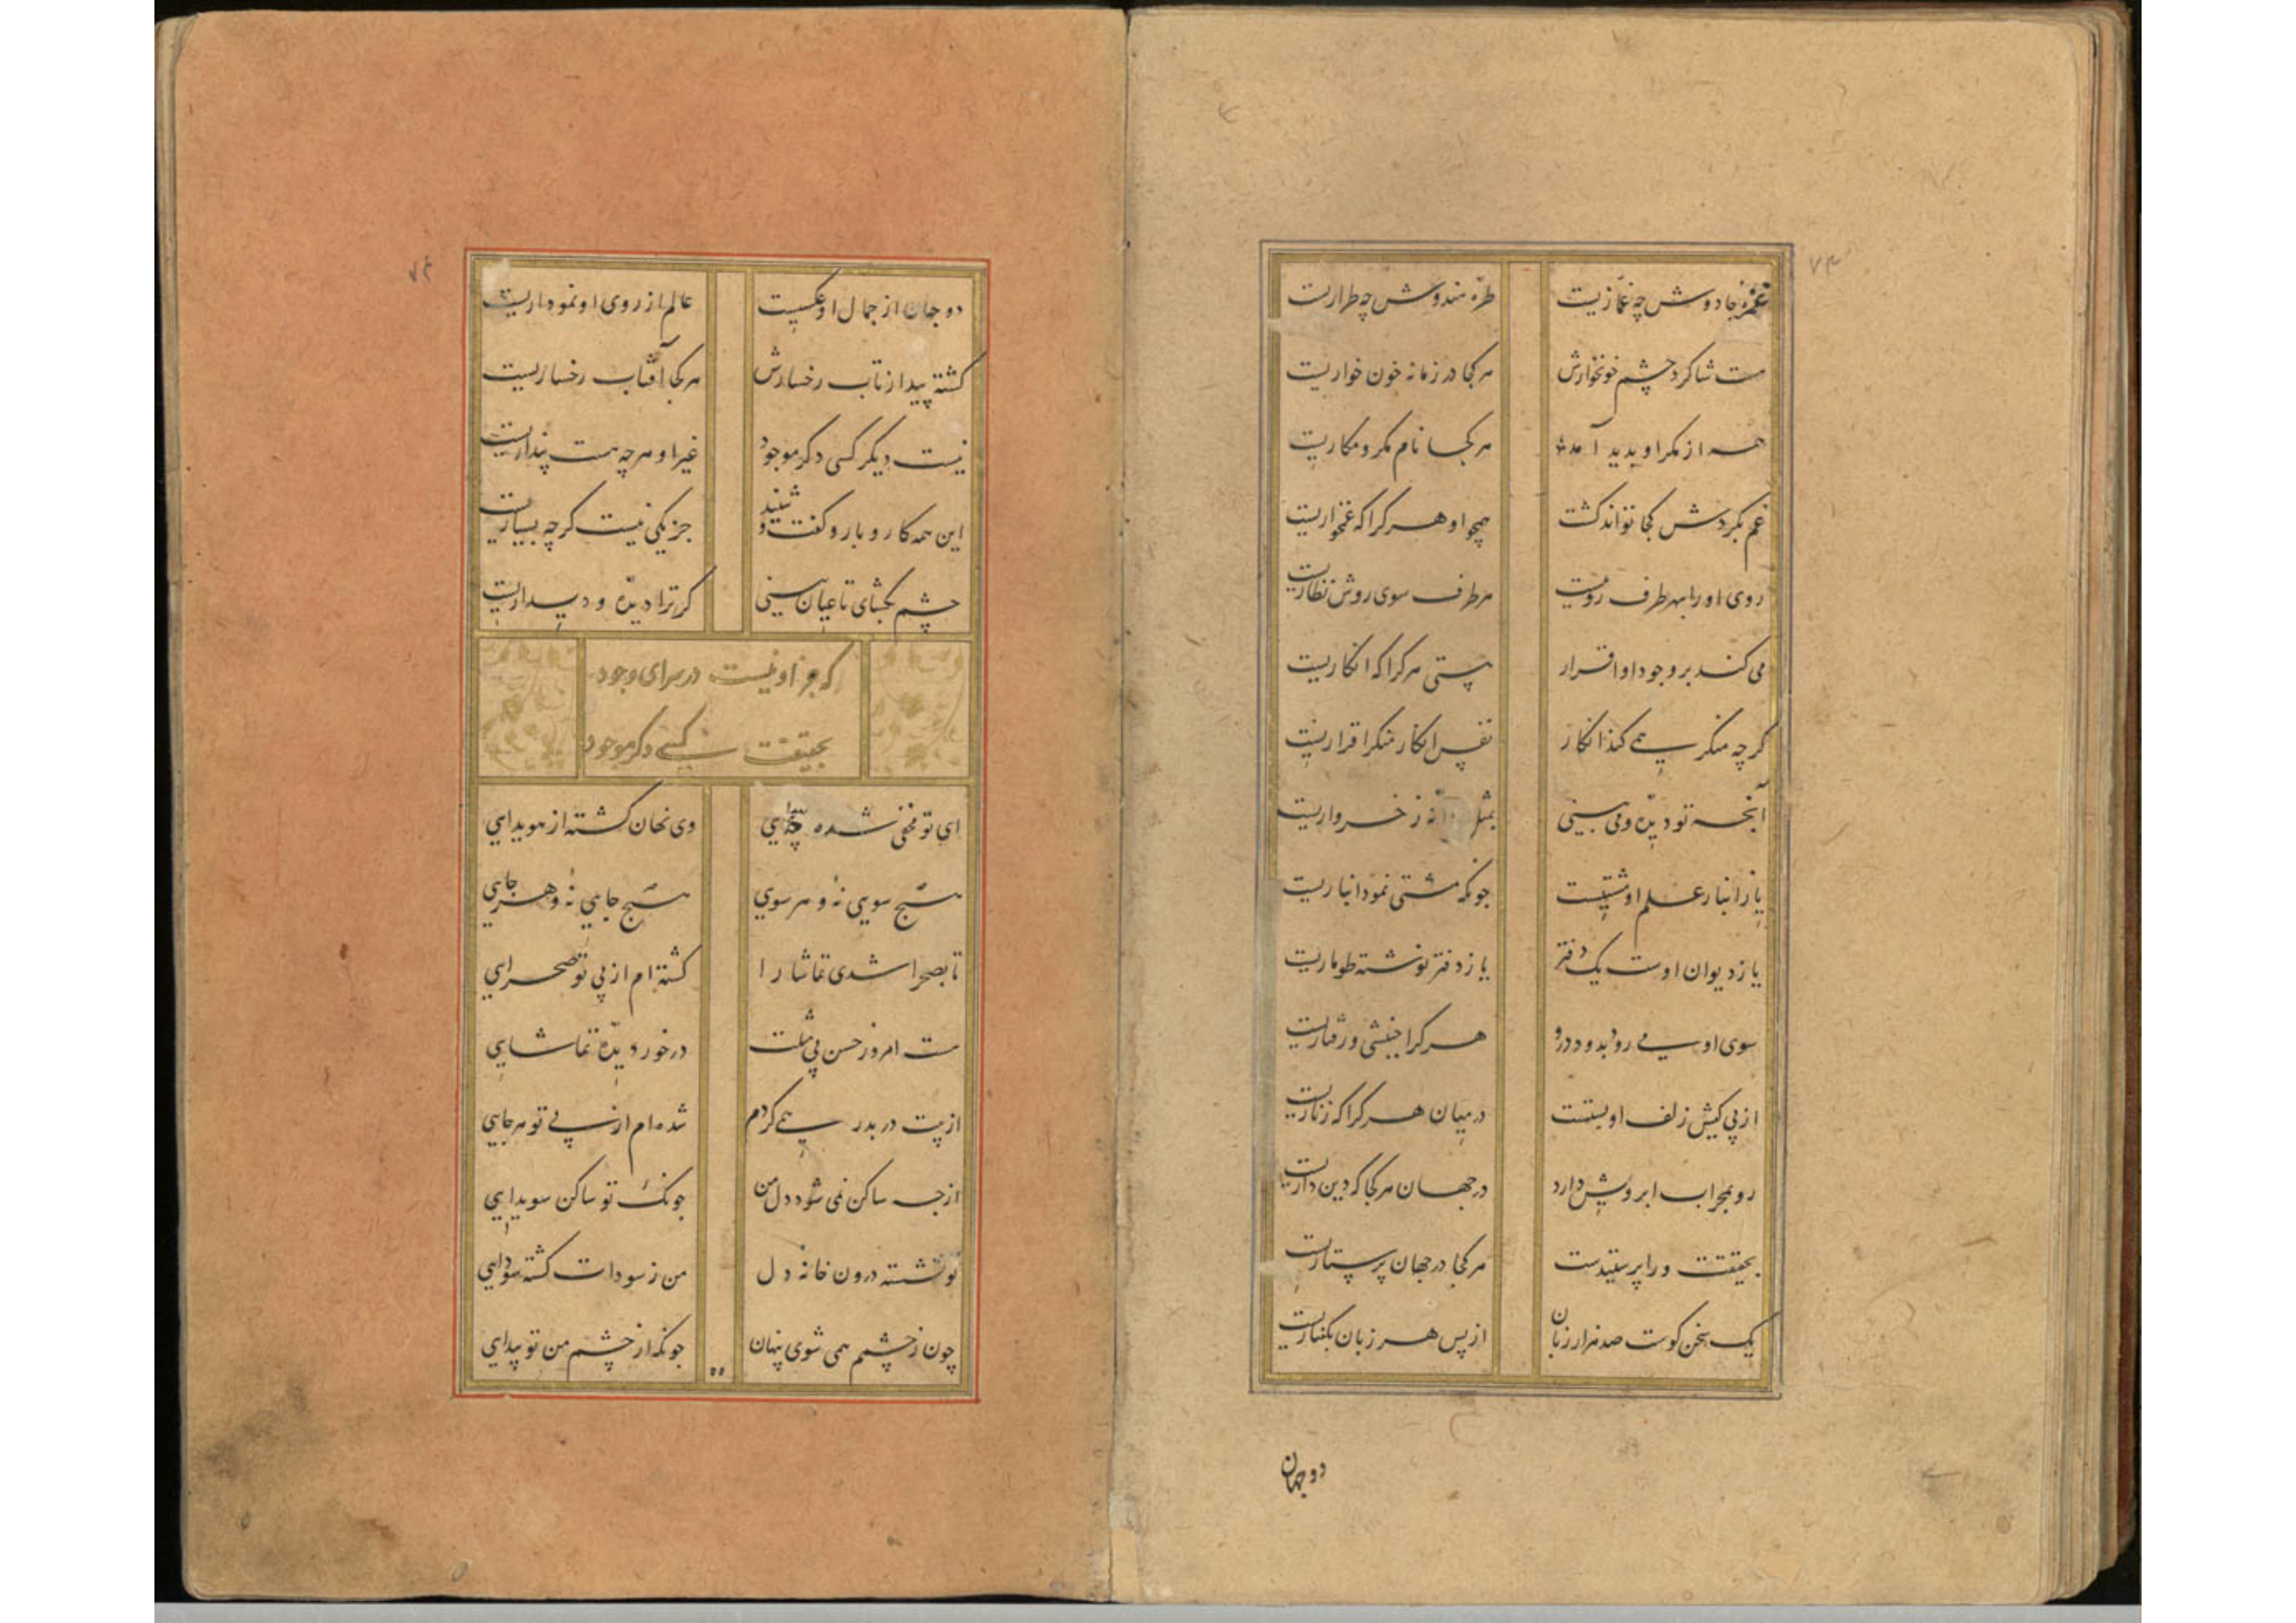 ۷۳
غمزهٔ جادوش چه غمّازیت طرّه هندوش چه طراریت
هست شاکرد چشم خونخوارش هر کجا در زمانه خون خواریت
همه از مکر او پدید آمد هر کجا نام مکر و مکاریت
غم بکردش کجا تواند کشت همچو او هر کرا که غمخواریت
روی او را بهر طرف روییت هر طرف سوی روش نظاریت
می کند بر وجود او اقرار پستی هر کرا که انکاریت
کر چه منکر همی کند انکار نفس انکار منکر اقراریت
آنچه تو دیدهٔ و می بینی بمثل دانهٔ ز خرواریت
یا ز انبار علم او مشتیست جونکه مشتی نمود انباریت
یا ز دیوان اوست یک دفتر یا ز دفتر نوشته طوماریت
سوی او می رود بدو در و هر کرا جنبشی و رفتاریت
از پی کیش زلف او بستست در میان هر کرا که زناریت
رو بمحراب ابرویش دارد در جهان هر کجا که دین داریت
بحقیقت ورا پرستیدست هر کجا در جهان پرستاریت
یک سخن کوست صد هزار زبان از پس هر زبان بکفتاریت
دو جهان
۷۴
دو جهان از جمال او عکسیت عالم از روی او نموداریت
کشته پیدا ز تاب رخسارش هر کجا آفتاب رخساریت
نیست دیگر کسی دکر موجود غیر او هر چه هست پنداریت
این همه کار و بار و کفت و شنید جز یکی نیست کر چه بسیاریت
چشم بکشای تا عیان بینی کر ترا دیدهٔ و دیداریت
که جز او نیست در سرای وجود
بحقیقت کسی دکر موجود
ای تو مخفی شده ز پیدایی وی نهان کشته از هویدایی
هیچ سویی نهٔ و هر سویی هیچ جایی نهٔ و هر جایی
تا بصحرا شدی تماشا را کشته ام از پی تو صحرایی
هست امروز حسن بی مثلت در خور دیدهٔ تماشایی
از پیت در بدر همی کردم شده ام از پی تو هر جایی
از چه ساکن نمی شود دل من جونک تو ساکن سویدایی
تو نشسته درون خانه دل من ز سودات کشته سودایی
چون ز چشمم همی شوی پنهان جونکه از چشم من تو پیدایی